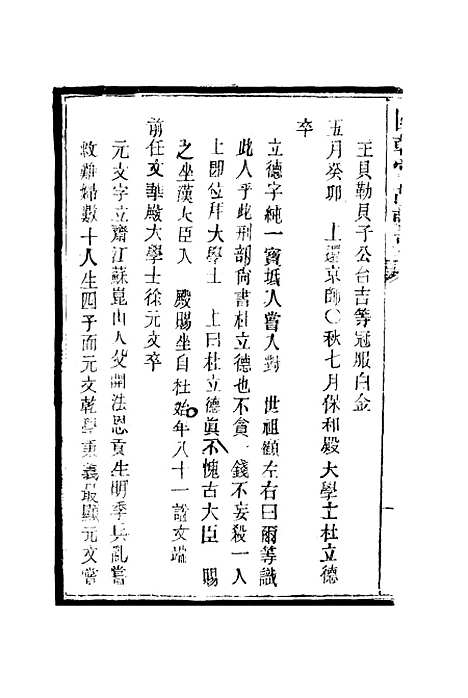 王貝勒貝子公台吉等冠服白金
五月癸卯　上還京師〇秋七月保和殿大學士杜立德
卒
立德字純一寶坻人嘗入對　世祖顧左右曰爾等識
此人乎此刑部尚書杜立德也不貪一錢不妄殺一人
上卽位拜大學　上曰杜立德眞不愧古大臣　賜
之坐漢大臣入　殿賜坐自杜始年八十一諡文端
前任文華殿大學士徐元文卒
元文字立齋江蘇崑山人父開法恩貢生明季兵亂嘗
救難婦數十人生四子而元文乾學秉義最顯元文嘗